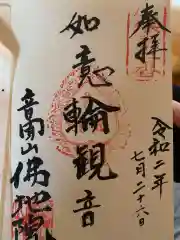 奉拝
令和二年
七月二十六日
如意輪観音
音羽山佛地院